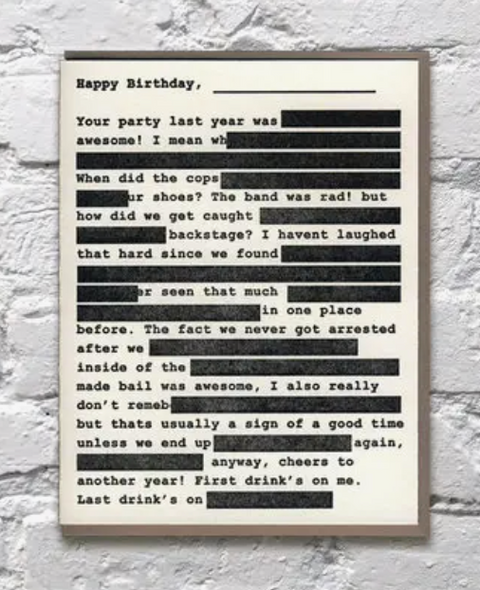 Happy Birthday,
Your party last year was
awesome! I mean wh
When did the cops
ur shoes? The band was rad! but
how did we get caught
backstage? I havent laughed
that hard since we found
er seen that much
in one place
before. The fact we never got arrested
after we
inside of the
made bail was awesome, I also really
don't remeb
but thats usually a sign of a good time
unless we end up again,
anyway, cheers to
another year! First drink's on me.
Last drink's on